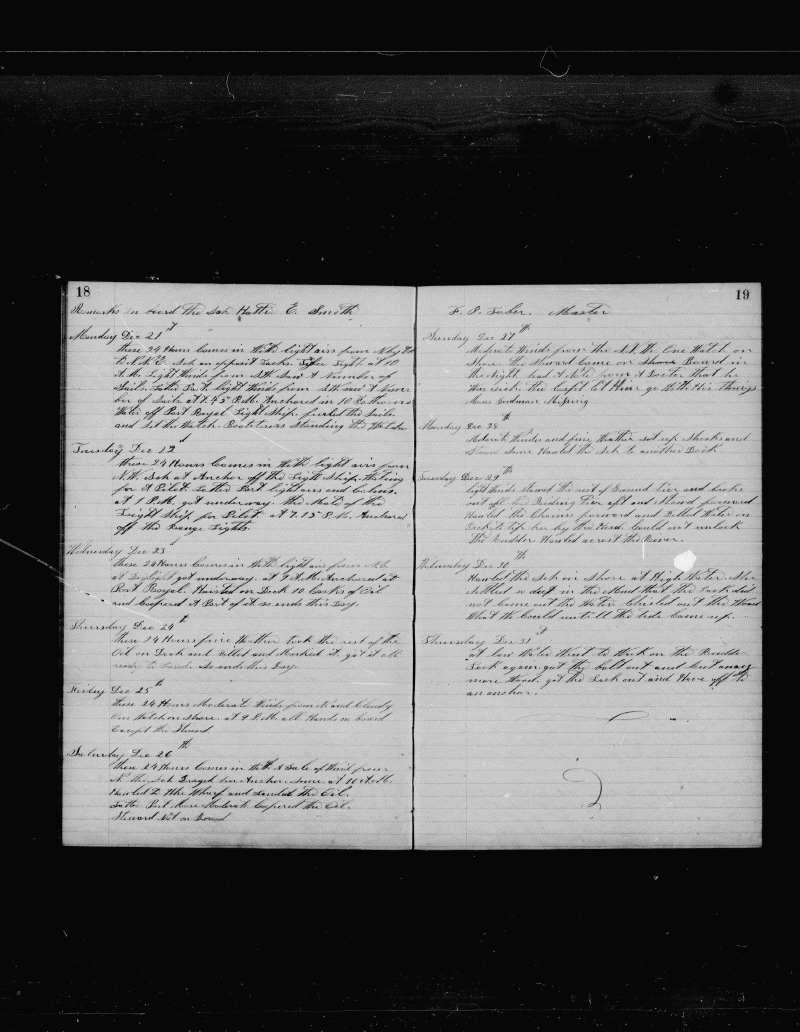 18
Remarks on board The Sch Hattie E. Smith
Monday Dec 21st
these 24 Hours Comes in With light airs from N by W
to N.N.E. Sch on opposit tacks. Light at 10
A.M. light Winds from Sth saw A Number of
Sails. Latter Part light Winds from Sth saw A Num
ber of Sails at 7.45 P.M. Anchored in 10 Fathoms
Water off Port Royal Light Ship. furled the Sails
and Set the Watch. Boatsteers Standing the Watch
Tuesday Dec 22d
these 24 Hours Comes in With light airs from
N.W. Sch at Anchor off the Light Ship Waiting
for A Pilot. Latter Part light airs and Calms.
at 1 P.M. got underway. the Mate of the
Light Ship for Pilot at 7.15 P.M. Anchored
off the Range Lights.
Wednesday Dec 23
these 24 Hours Comes in With light airs from
at Daylight got underway. at 9 A.M. Anchored at
Port Royal. Hoisted on Deck 10 Casks of Oil
and Coopered A Part of it so ends this Day.
Thursday Dec 24th
these 24 Hours fine Weather took the rest of the
Oil on Deck and filled and Marked it, got it all
ready to Land. So ends this Day
Friday Dec 25th
these 24 Hours Moderate Winds from N and Cloudy
One Watch on Shore. at 9 P.M. all Hands on board
Except the Steward
Saturday Dec 26th
these 24 Hours Comes in With A Gale of Wind from
N. the Sch Draged her Anchor some at 10 A.M.
Hauled to the Wharf and Landed the Oil.
Latter Part More Moderate Coopered the Oil.
Steward Not on Board
19
F. P. Master
Sunday Dec 27th
Moderate Winds from the N.W. One Watch on
Shore. the Steward Came on Shore Board in
the Night had A Note from A Doctor that he
Was sick. the Capt let Him go With His things
Moses Missing
Monday Dec 28th
Moderate Winds and fine Weather set up Shooks and
Stowed Some Hauled the Sch to another Dock
Tuesday Dec 29th
light Winds Stowed the rest of Ground Tier and broke
out the Riding Tier aft and Stowed forward
Hauled the Chains forward and Filled Water on
Deck to tip her by the Head. Could not unlock
the Rudder Hauled acrost the River.
Wednesday Dec 30th
Hauled the Sch in Shore at High Water. She
Settled so deep in the Mud that the Lock did
not Come out the Water Chiseled out the Wood
What We Could untill the tide Came up.
Thursday Dec 31st
at low Water Went to Work on the Rudder
Lock again got the bolt out and Cut away
more Wood. got the Lock out and Hove off to
an anchor.